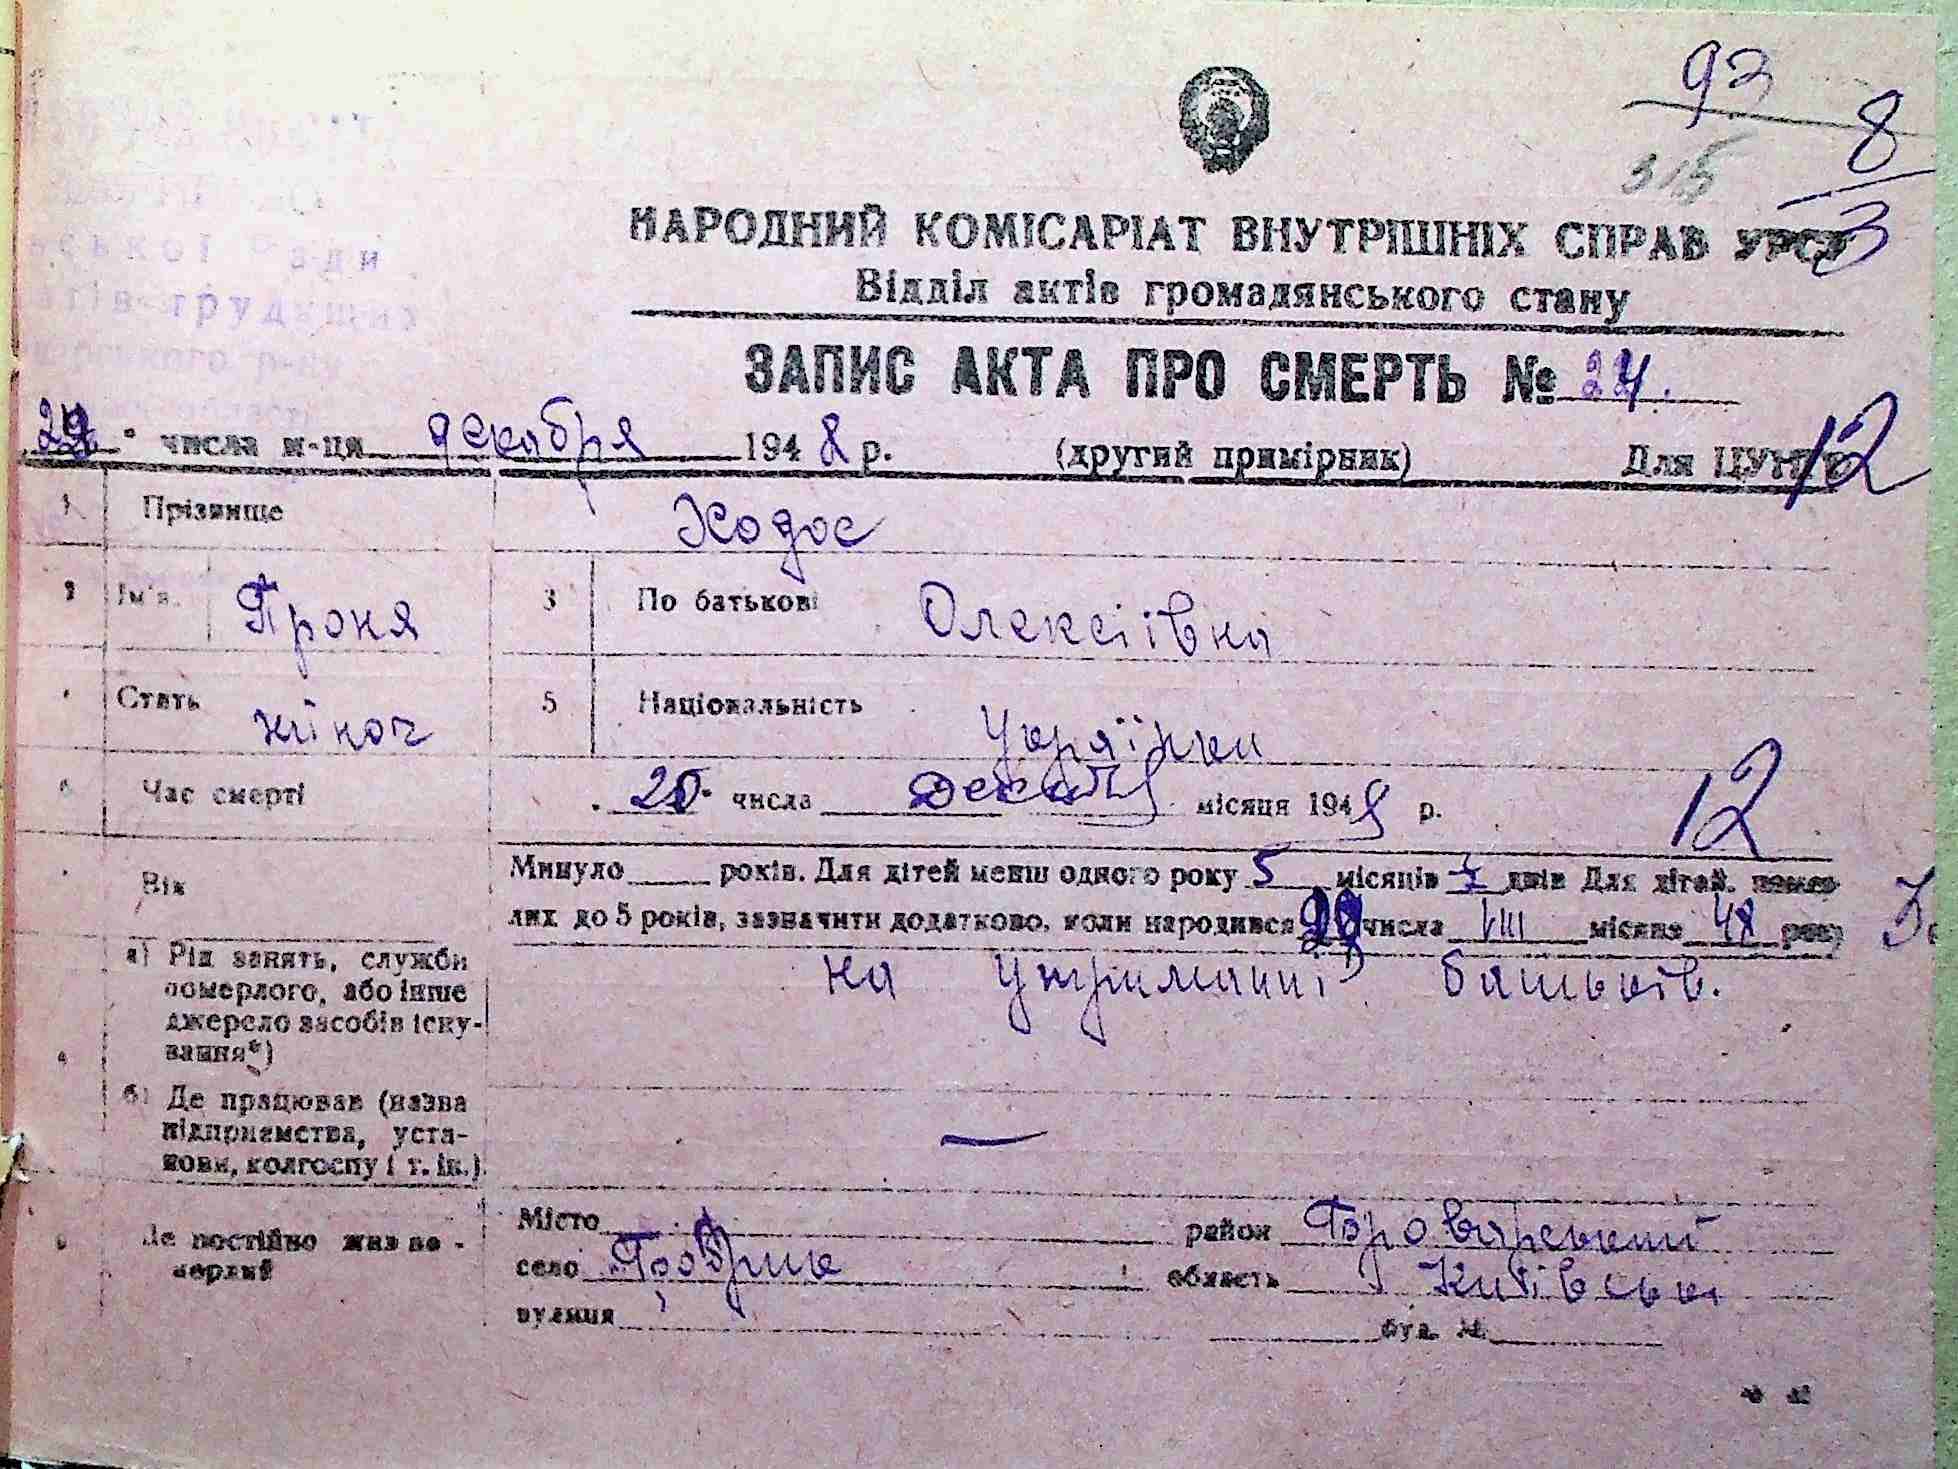 93
8
315
3
НАРОДНИЙ КОМІСАРІАТ ВНУТРІШНІХ СПРАВ УРСР
Відділ актів громадянського стану
ської Ради
трудящих
ського р-ну
ЗАПИС АКТА ПРО СМЕРТЬ № 24.
числа м-ця декабря 1948 р. (другий примірник) Для ЦУНГО
12
1 Прізвище Ходос
2 Ім'я Проня 3 По батькові Олексіївна
Стать жіноч 5 Національність Українка
6 Час смерті 20 числа декабря місяця 1948 р.
12
Вік Минуло років. Для дітей менш одного року 5 місяців днів Для дітей, помер-
лих до 5 років, зазначити додатково, коли народився числа VIII місяця 48 року
а) Рід занять, служби померлого, або інше джерело засобів існу-вання*) на утриманні батьків.
б) Де працював (назва підприємства, уста-нови, колгоспу і т. ін.) —
Де постійно жив по-мерлий
Місто район Броварський
село область Київська
вулиця буд. №